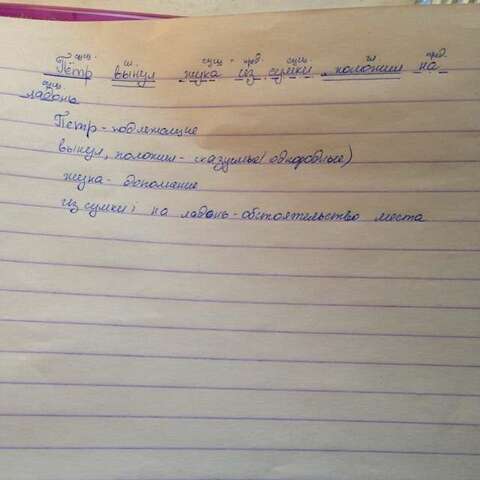 сущ. гл. сущ. пред. сущ. гл. пред.
Пётр вынул жука из сумки, положил на
сущ.
ладонь
Пётр - подлежащие
вынул, положил - сказуемые (однородные)
жука - дополнание
из сумки; на ладонь - обстоятельство места